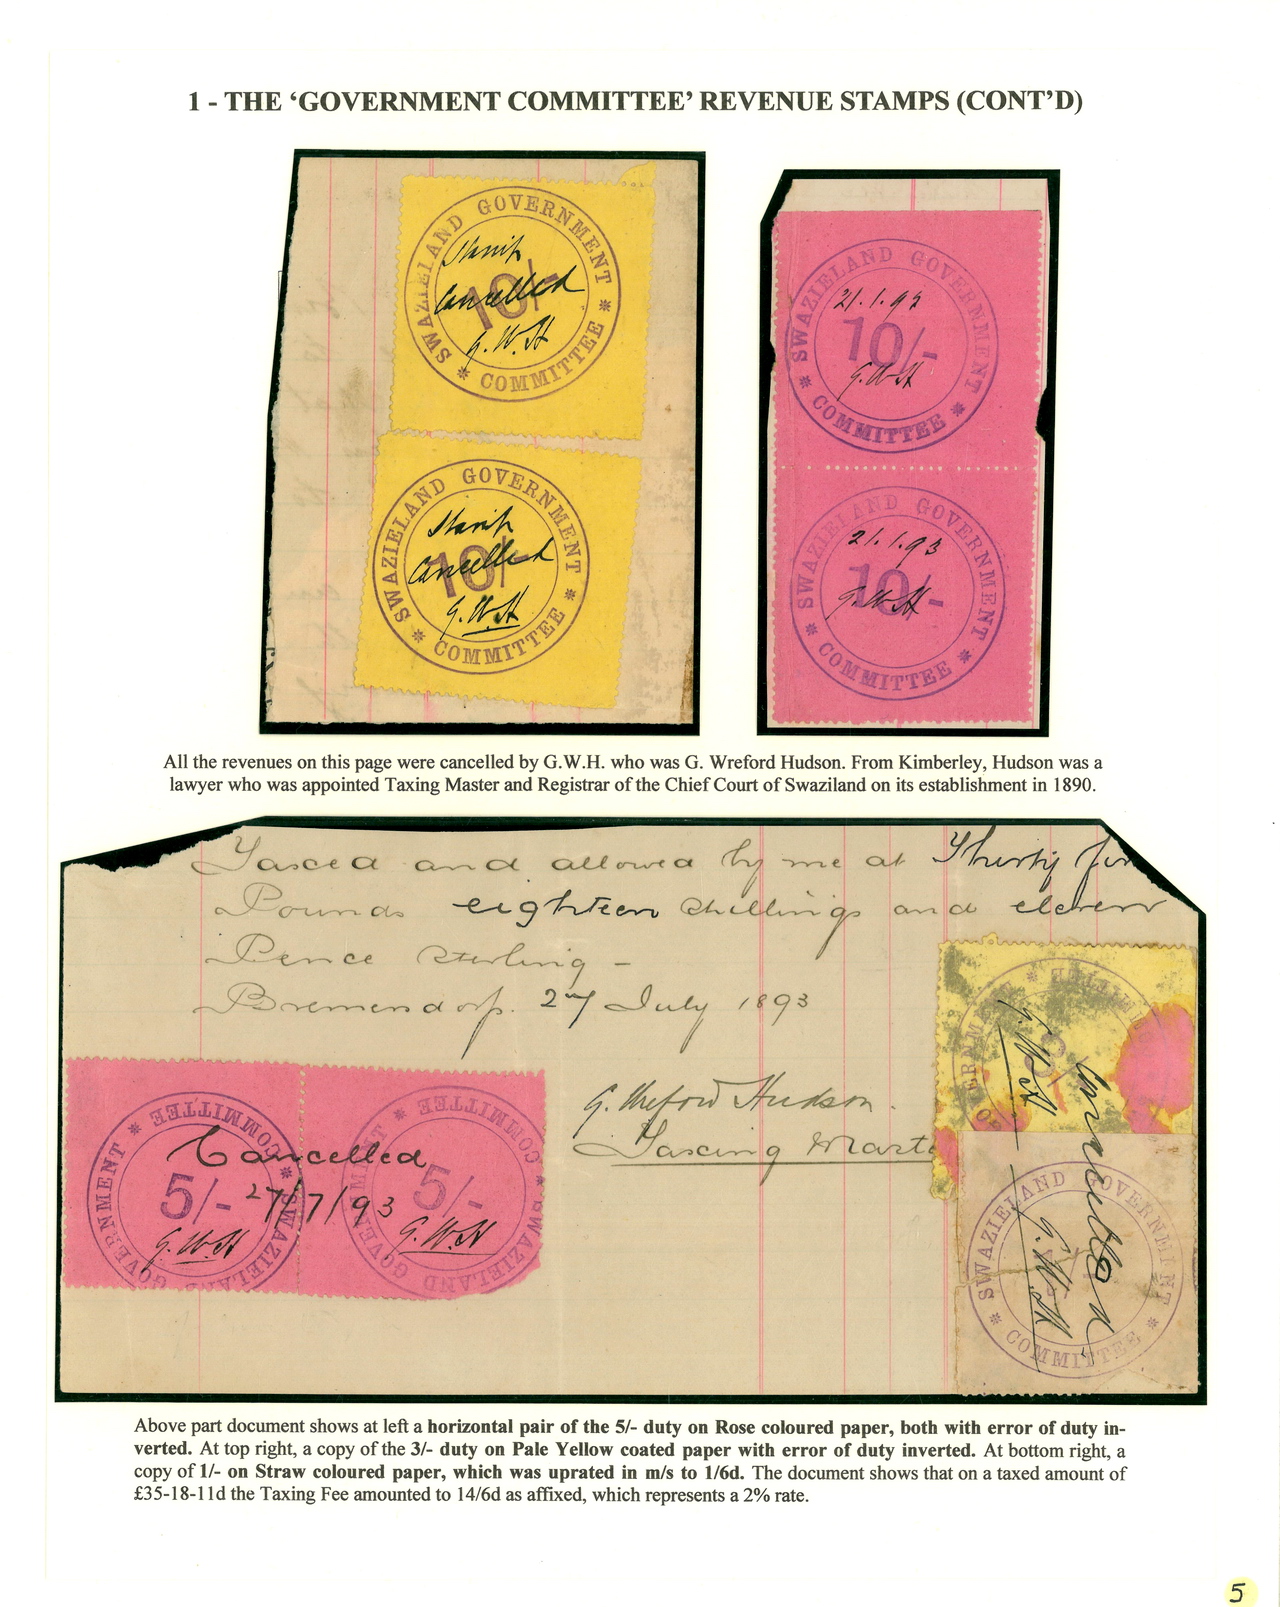 1 - THE ‘GOVERNMENT COMMITTEE’ REVENUE STAMPS (CONT’D)
SWAZIELAND GOVERNMENT
Stamp
10/-
Cancelled
G.W.H
* COMMITTEE *
SWAZIELAND GOVERNMENT
Stamp
10/-
Cancelled
G.W.H
* COMMITTEE *
SWAZIELAND GOVERNMENT
21.1.93
10/-
G.W.H
* COMMITTEE *
SWAZIELAND GOVERNMENT
21.1.93
10/-
G.W.H
* COMMITTEE *
All the revenues on this page were cancelled by G.W.H. who was G. Wreford Hudson. From Kimberley, Hudson was a
lawyer who was appointed Taxing Master and Registrar of the Chief Court of Swaziland on its establishment in 1890.
Taxed and allowed by me at Thirty
Pounds eighteen shillings and eleven
Pence sterling -
Bremersdorp. 27 July 1893
G. Wreford Hudson.
Taxing Maste
SWAZIELAND GOVERNMENT
* COMMITTEE *
5/-
Cancelled
27/7/93
G.W.H
SWAZIELAND GOVERNMENT
* COMMITTEE *
5/-
G.W.H
3/
G.W.H
Cancelled
SWAZIELAND GOVERNMENT
G.W.H
* COMMITTEE *
Above part document shows at left a horizontal pair of the 5/- duty on Rose coloured paper, both with error of duty in-
verted. At top right, a copy of the 3/- duty on Pale Yellow coated paper with error of duty inverted. At bottom right, a
copy of 1/- on Straw coloured paper, which was uprated in m/s to 1/6d. The document shows that on a taxed amount of
£35-18-11d the Taxing Fee amounted to 14/6d as affixed, which represents a 2% rate.
5